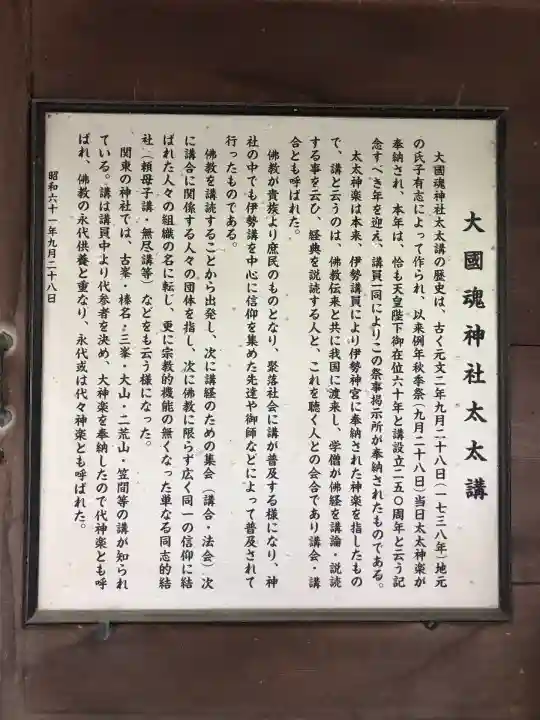 大國魂神社太太講
大國魂神社太太講の歴史は、古く元文二年九月二十八日(一七三八年)地元
の氏子有志によって作られ、以来例年秋季祭(九月二十八日)当日太太神楽が
奉納され、本年は、恰も天皇陛下御在位六十年と講設立二五〇周年と云う記
念すべき年を迎え、講員一同によりこの祭事掲示所が奉納されたものである。
太太神楽は本来、伊勢講員により伊勢神宮に奉納された神楽を指したもの
で、講と云うのは、佛教伝来と共に我国に渡来し、学僧が佛経を講論・説読
する事を云ひ、経典を説読する人と、これを聴く人との会合であり講会・講
合とも呼ばれた。
佛教が貴族より庶民のものとなり、聚落社会に講が普及する様になり、神
社の中でも伊勢講を中心に信仰を集めた先達や御師などによって普及されて
行ったものである。
佛教を講読することから出発し、次に講経のための集会(講合・法会)次
に講合に関係する人々の団体を指し、次に佛教に限らず広く同一の信仰に結
ばれた人々の組織の名に転じ、更に宗教的機能の無くなった単なる同志的結
社(頼母子講・無尽講等)などをも云う様になった。
関東の神社では、古峯・榛名・三峯・大山・二荒山・笠間等の講が知られ
ている。講は講員中より代参者を決め、大神楽を奉納したので代神楽とも呼
ばれ、佛教の永代供養と重なり、永代或は代々神楽とも呼ばれた。
昭和六十一年九月二十八日